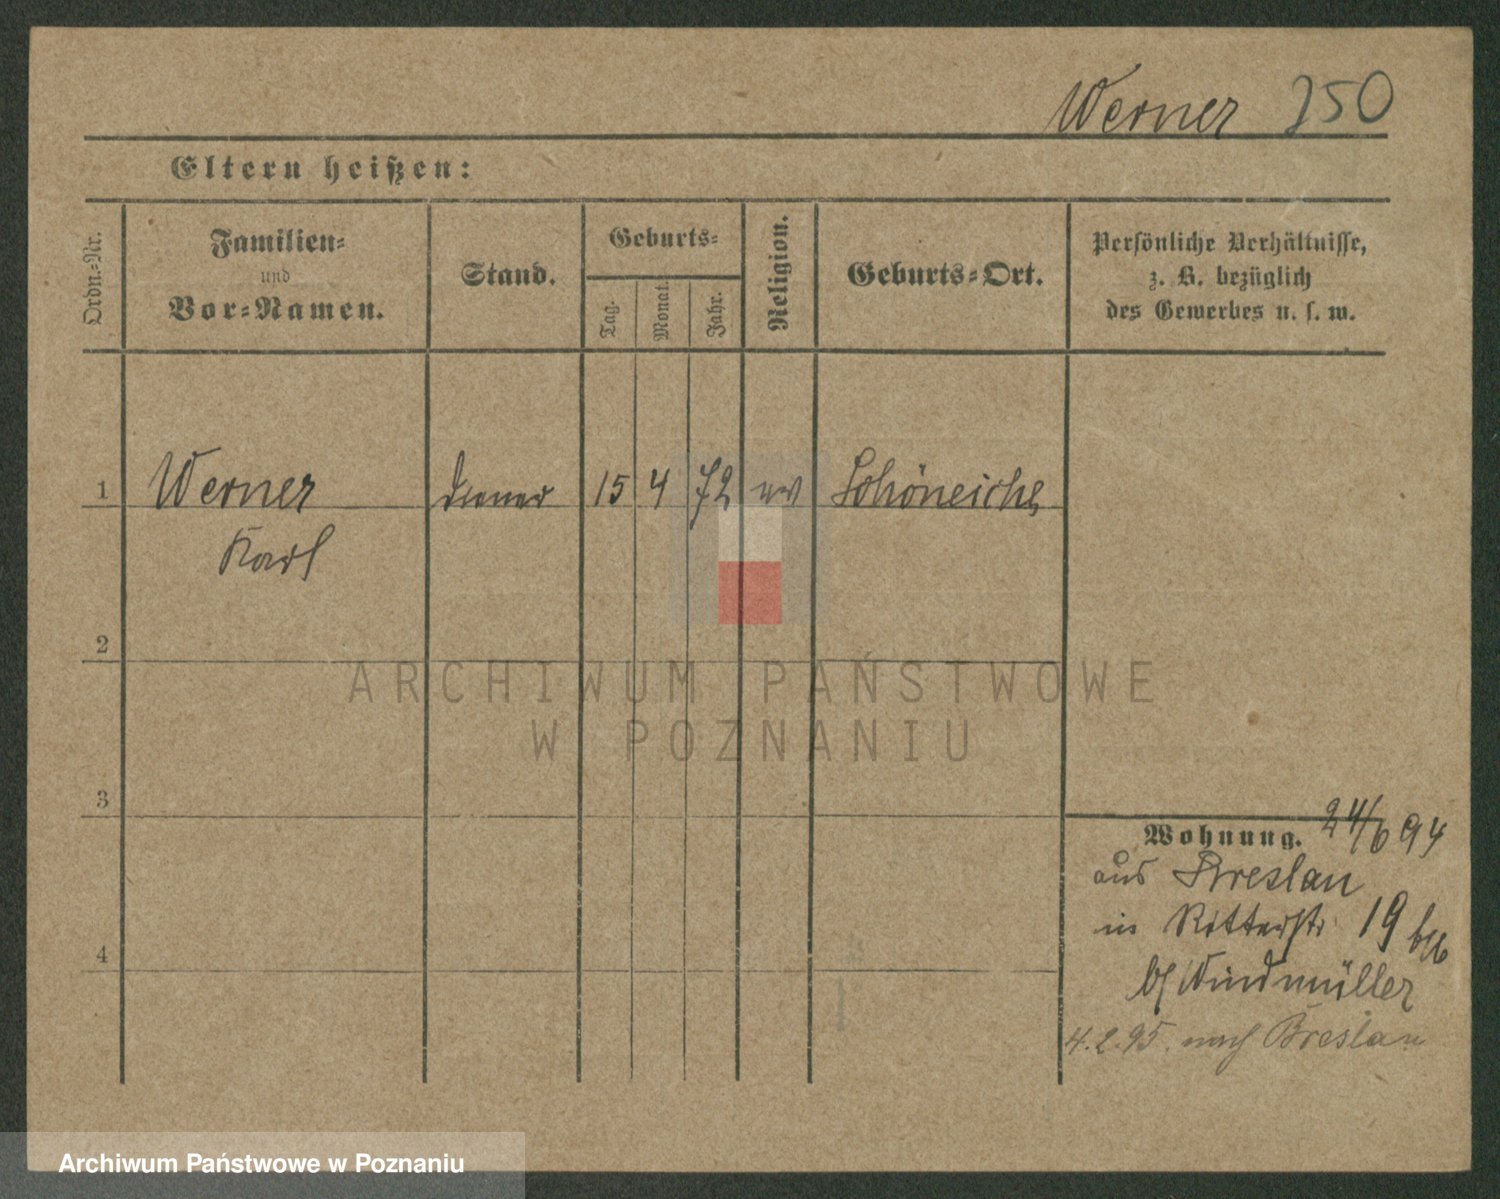 Werner 250
Eltern heißen:
Ordn.-Nr.
Familien-
und
Vor-Namen.
Stand.
Geburts-
Tag.
Monat.
Jahr.
Religion.
Geburts-Ort.
Persönliche Verhältnisse,
z. B. bezüglich
des Gewerbes u. s. w.
1 Werner Diener 15 4 72 ev Schöneiche
Karl
2
ARCHIWUM PAŃSTWOWE
W POZNANIU
3
Wohnung. 24/6 94
aus Breslau
in Ritterstr 19
b/ Windmüller
4
4.2.95. nach Breslau
Archiwum Państwowe w Poznaniu